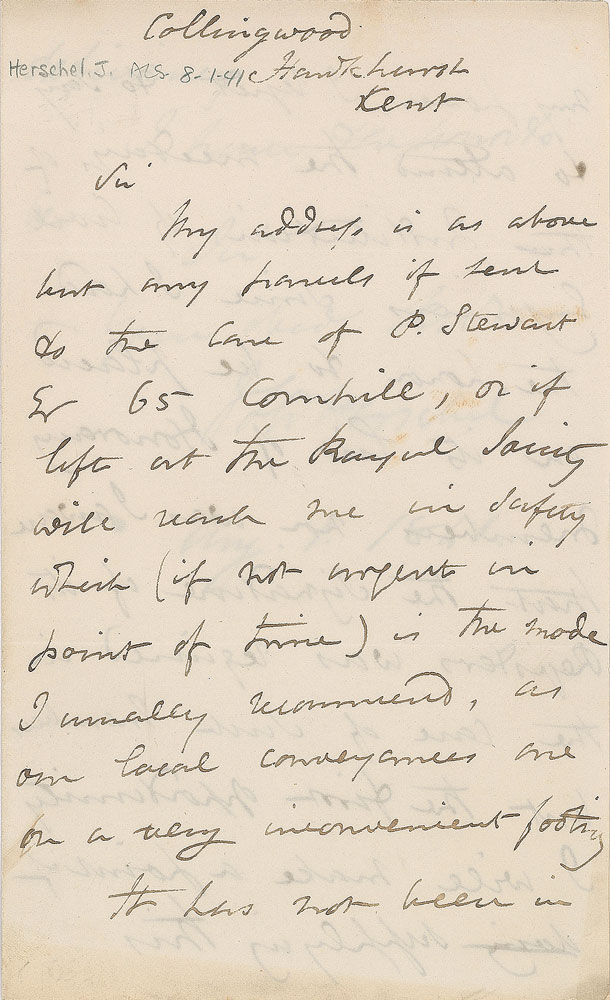 Collingwood
Herschel, J. ALS 8-1-41
Hawkhurst
Kent
Sir
My address is as above
but any parcels if sent
to the care of P. Stewart
Esr 65 Cornhill, or if
left at the Royal Society
will reach me in safety
which (if not urgent in
point of time) is the mode
I usually recommend, as
our local conveyances are
on a very inconvenient footing
It has not been in